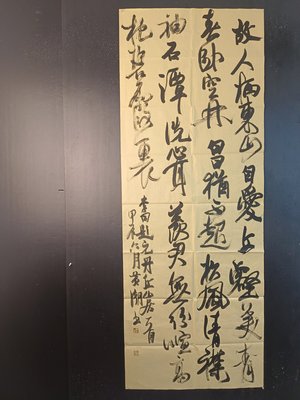 故人栖東山自愛丘壑美青
春卧空林白日猶不起松風清襟
袖石潭洗心耳羡君無紛喧高
枕碧霞裏
李白題元丹丘山居一首
甲辰